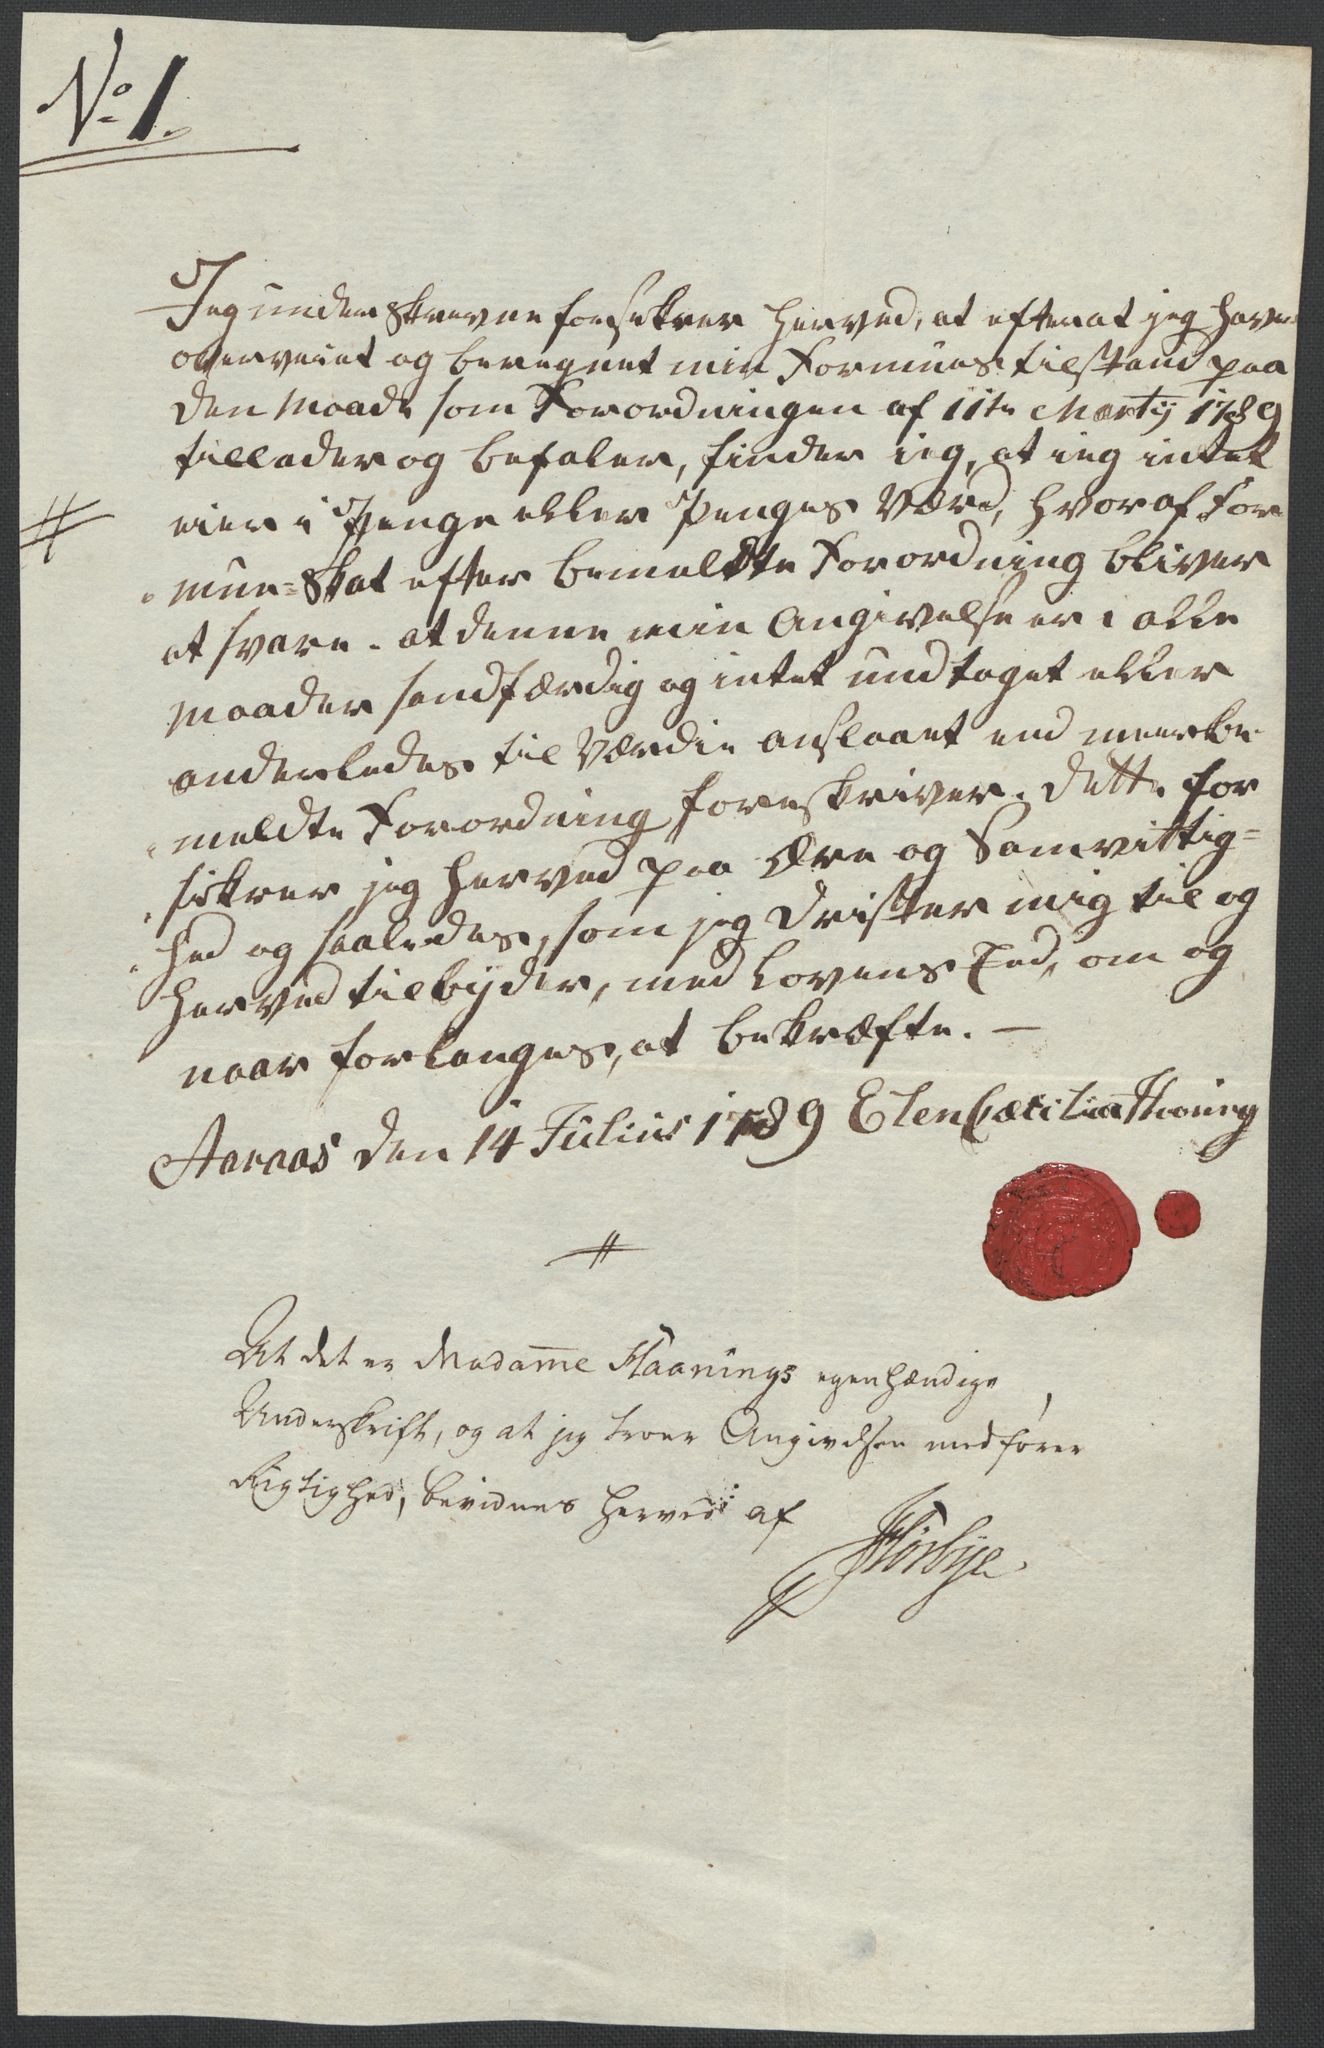 No 1.
Jeg underskrevne forsikrer herved, at efterat jeg haver
overveiet og beregnet min Formues tilstand paa
den Maade som Forordningen af 11te Martij 1789
tillader og befaler, finder ieg, at ieg intet
eier i Penge eller Penges Værd, hvoraf For
mue-Skat efter bemeldte Forordning bliver
at svare. at denne min Angivelse er i alle
Maader sandfærdig og intet undtaget eller
anderledes til Værdie anslaaet end meerbe
meldte Forordning foreskriver. Dette for
sikrer jeg herved paa Ære og Samvittig=
hed og saaledes, som jeg drister mig til og
herved tilbyder, med Lovens Eed, om og
naar forlanges, at bekræfte. —
Aaraas den 14 Julius 1789 Elen Cæcilia Haaning
At det er Madame Haanings egenhændige
Underskrift, og at jeg troer Angivelsen medfører
Rigtighed, bevidnes herved af